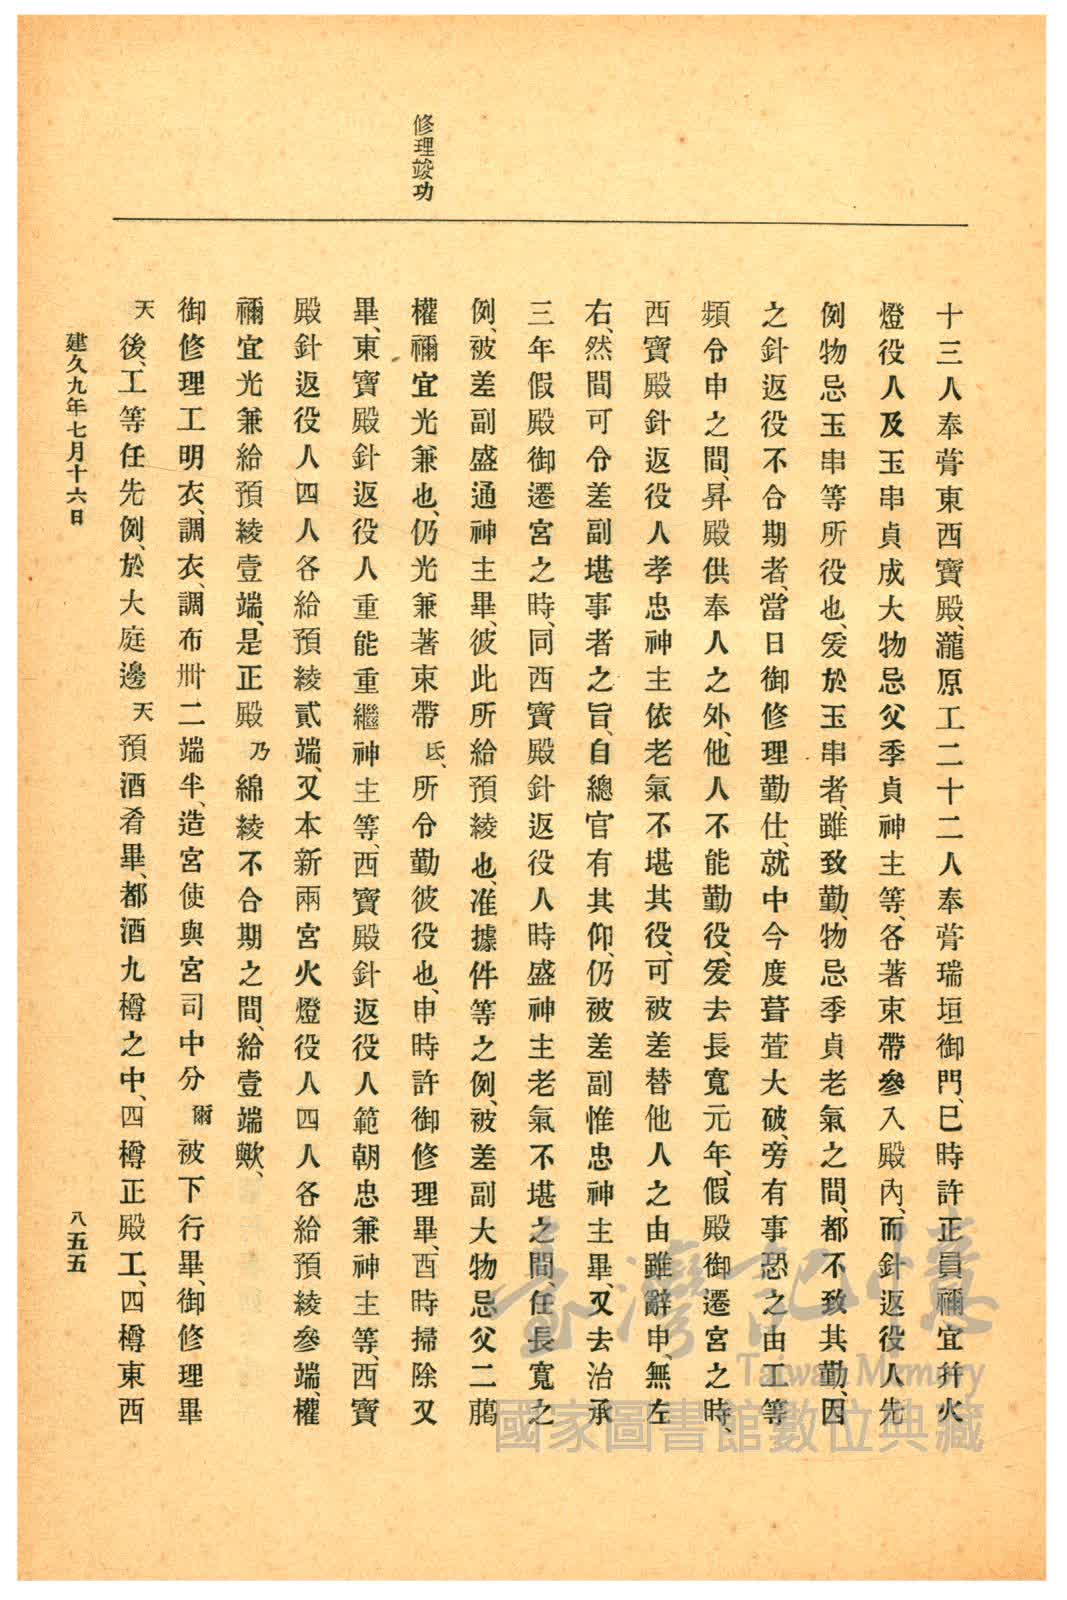 修理竣功
十三人奉葺東西寶殿、瀧原工二十二人奉葺瑞垣御門、巳時許正員禰宜幷火
燈役人及玉串貞成大物忌父季貞神主等、各著束帶參入殿內、而針返役人先
例物忌玉串等所役也、爰於玉串者、雖致勤、物忌季貞老氣之間、都不致其勤、因
之針返役不合期者、當日御修理勤仕、就中今度葺萓大破、旁有事恐之由工等
頻令申之間、昇殿供奉人之外、他人不能勤役、爰去長寬元年、假殿御遷宮之時、
西寶殿針返役人孝忠神主依老氣不堪其役、可被差替他人之由雖辭申、無左
右、然間可令差副堪事者之旨、自總官有其仰、仍被差副惟忠神主畢、又去治承
三年假殿御遷宮之時、同西寶殿針返役人時盛神主老氣不堪之間、任長寬之
例、被差副盛通神主畢、彼此所給預綾也、准據件等之例、被差副大物忌父二﨟
權禰宜光兼也、仍光兼著束帶氐、所令勤彼役也、申時許御修理畢、酉時掃除又
畢、東寶殿針返役人重能重繼神主等、西寶殿針返役人範朝忠兼神主等、西寶
殿針返役人四人各給預綾貳端、又本新兩宮火燈役人四人各給預綾參端、權
禰宜光兼給預綾壹端、是正殿乃綿綾不合期之間、給壹端歟、
御修理工明衣、調衣、調布卅二端半、造宮使與宮司中分爾被下行畢、御修理畢
天後、工等任先例、於大庭邊天預酒肴畢、都酒九樽之中、四樽正殿工、四樽東西
建久九年七月十六日
八五五
臺灣記憶
Taiwan Memory
國家圖書館數位典藏